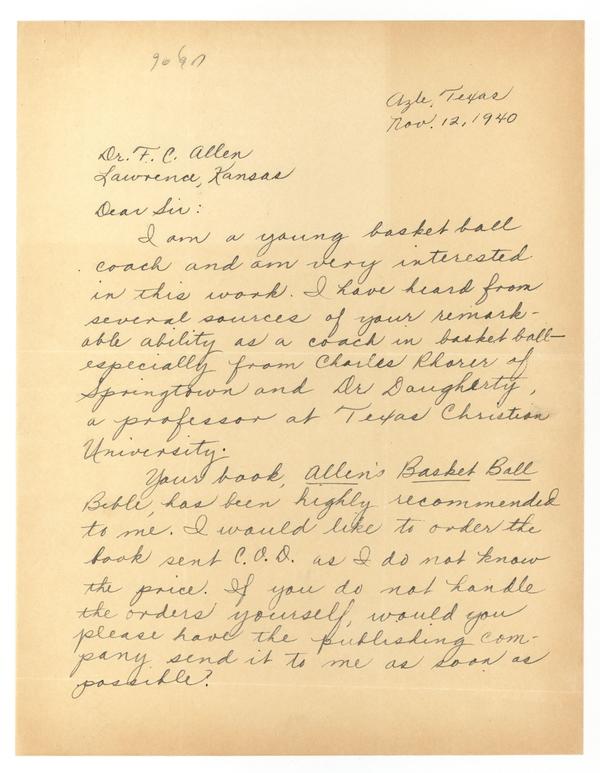 Azle, Texas
Nov. 12, 1940
Dr. F. C. Allen
Lawrence, Kansas
Dear Sir:
I am a young basket ball
coach and am very interested
in this work. I have heard from
several sources of your remark-
able ability as a coach in basket ball—
especially from Charles Rhorer of
Springtown and Dr Daugherty,
a professor at Texas Christian
University.
Your book, Allen's Basket Ball
Bible, has been highly recommended
to me. I would like to order the
book sent C.O.D. as I do not know
the price. If you do not handle
the orders yourself, would you
please have the publishing com-
pany send it to me as soon as
possible?